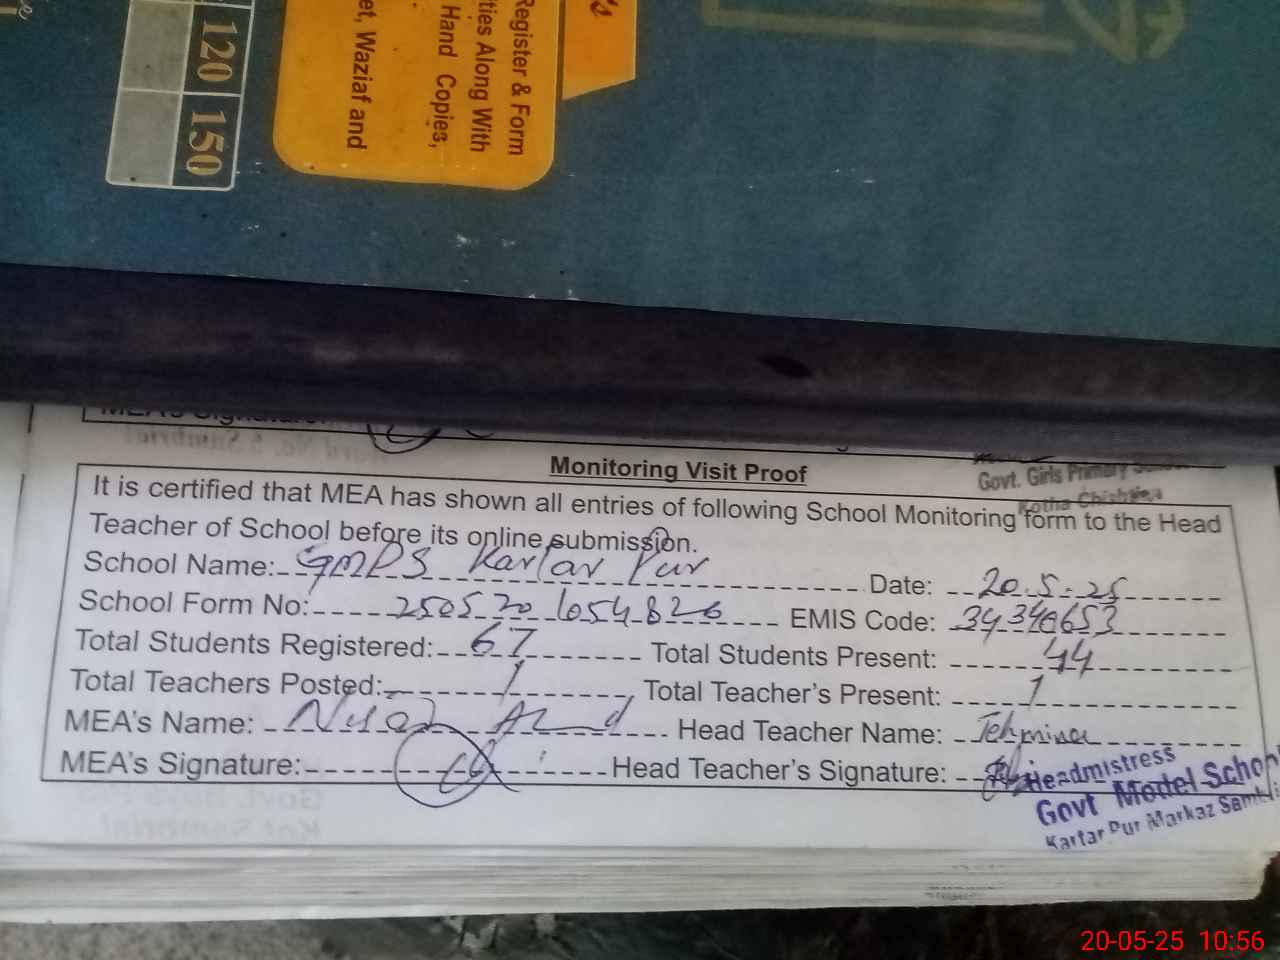 120 150
's
Register & Form
ties Along With
Hand Copies,
et, Waziaf and
MEA's Signature:
Govt. Girls Primary
Kotha Chishtiya
Monitoring Visit Proof
It is certified that MEA has shown all entries of following School Monitoring form to the Head
Teacher of School before its online submission.
School Name: GMPS Kartar Pur Date: 20.5.25
School Form No: 250520 1654826 EMIS Code: 34340653
Total Students Registered: 67 Total Students Present: 44
Total Teachers Posted: 1 Total Teacher's Present: 1
MEA's Name: Head Teacher Name: Tehmina
MEA's Signature: Head Teacher's Signature:
Headmistress
Govt Model School
Kartar Pur Markaz
20-05-25 10:56